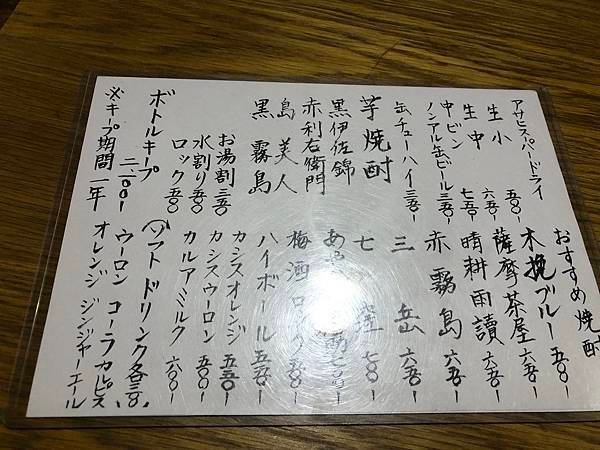 アサヒスーパードライ
生小 五〇〇-
生中 六五〇-
中ビン 七五〇-
ノンアル缶ビール 三五〇-
缶チューハイ 三五〇-
芋焼酎
黒伊佐錦
赤利右衛門
島美人
黒霧島
お湯割 三五〇
水割り 五〇〇
ロック 五〇〇
ボトルキープ
二、一〇〇-
※キープ期間一年
おすすめ焼酎
木挽ブルー 五〇〇-
薩摩茶屋 六五〇-
晴耕雨讀 六五〇-
赤霧島 六五〇-
三岳 六五〇-
七窪 七〇〇-
梅酒ロック 五〇〇-
ハイボール 五五〇-
カシスオレンジ 五五〇-
カシスウーロン 五〇〇-
カルアミルク 六〇〇-
ソフトドリンク各三〇〇-
ウーロン コーラ カルピス
オレンジ ジンジャーエール